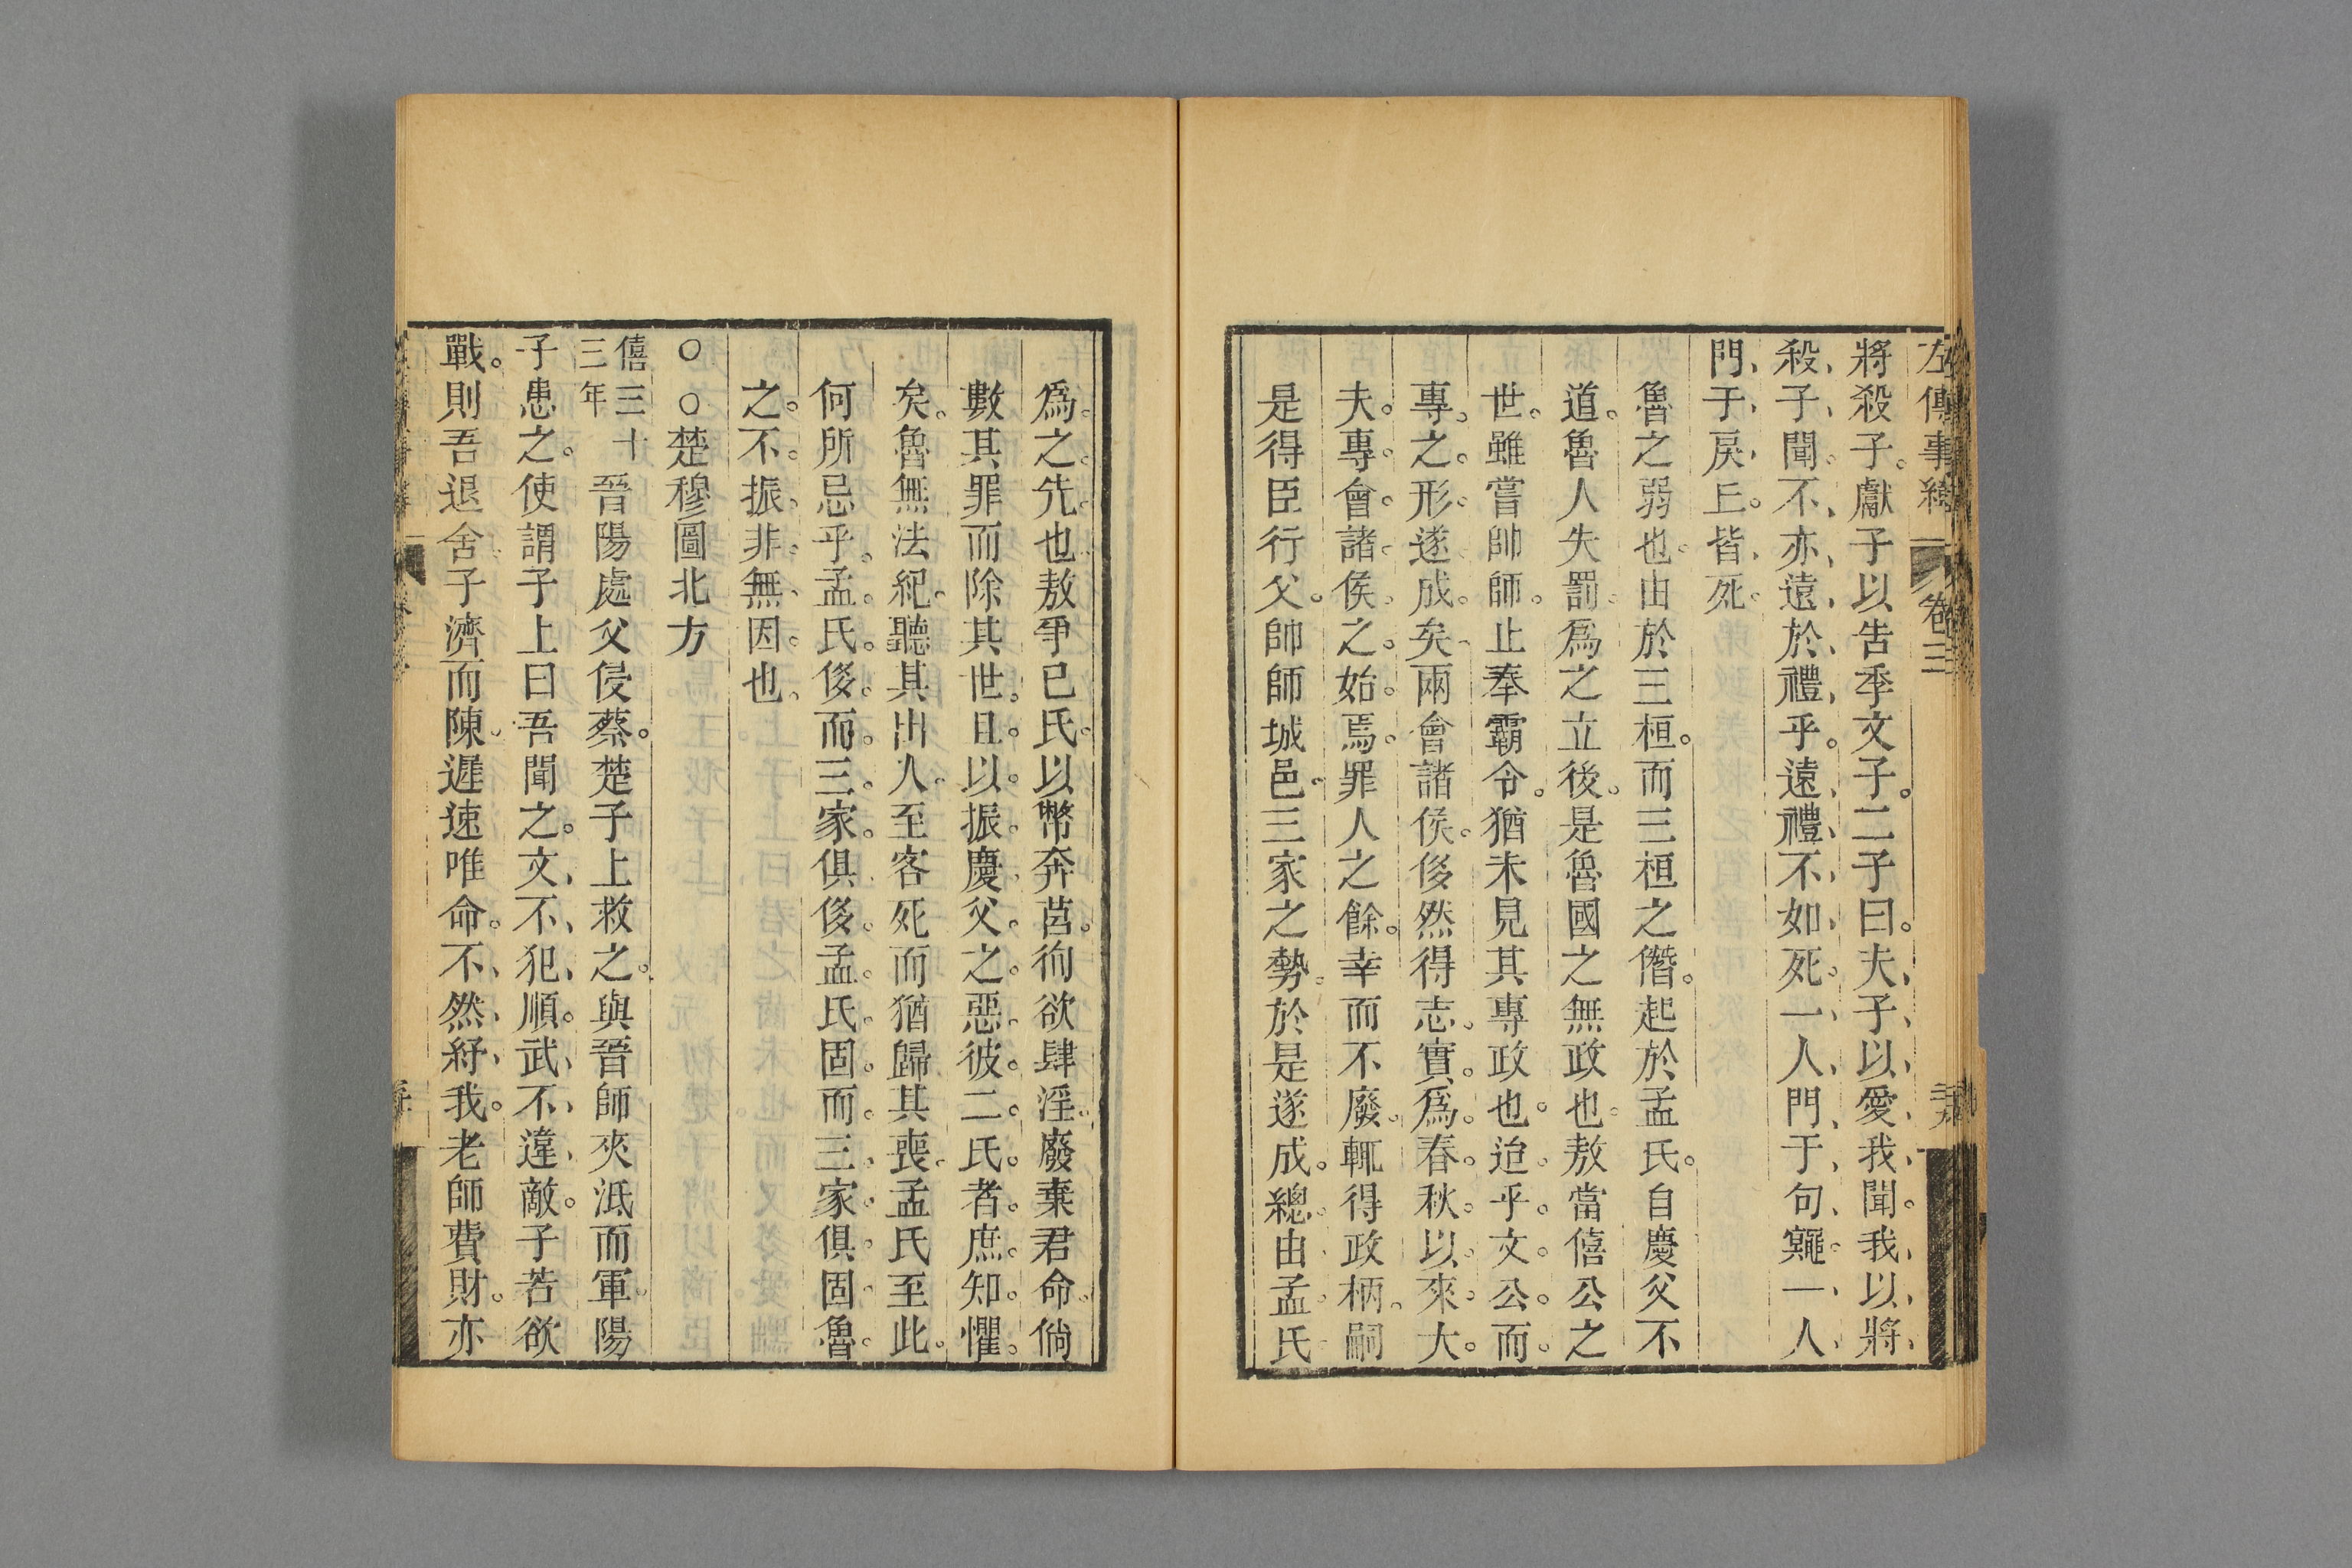 左傳事緯 卷三
將殺子。獻子以告季文子。二子曰。夫子以愛我聞。我以將
殺子聞。不亦遠於禮乎。遠禮不如死。一人門于句鼆。一人
門于戾丘。皆死。
魯之弱也。由於三桓。而三桓之僭。起於孟氏。自慶父不
道。魯人失罰。爲之立後。是魯國之無政也。敖當僖公之
世。雖嘗帥師。止奉霸令。猶未見其專政也。迨乎文公。而
專之。形遂成矣。兩會諸侯。侈然得志。實爲春秋以來大
夫專會諸侯之始焉。罪人之餘。幸而不廢。輒得政柄。嗣
是得臣行父。帥師城邑。三家之勢。於是遂成。總由孟氏
爲之先也。敖爭已氏。以幣奔莒。徇欲肆淫。廢棄君命。倘
數其罪而除其世。且以振慶父之惡。彼二氏者。庶知懼
矣。魯無法紀。聽其出人。至客死而猶歸其喪。孟氏至此。
何所忌乎。孟氏侈而三家俱侈。孟氏固而三家俱固。魯
之不振。非無因也。
○○楚穆圖北方
僖三十三年 晉陽處父侵蔡。楚子上救之。與晉師夾泜而軍。陽
子患之。使謂子上曰。吾聞之。文不犯順。武不違敵。子若欲
戰。則吾退舍。子濟而陳。遲速唯命。不然紓我。老師費財。亦